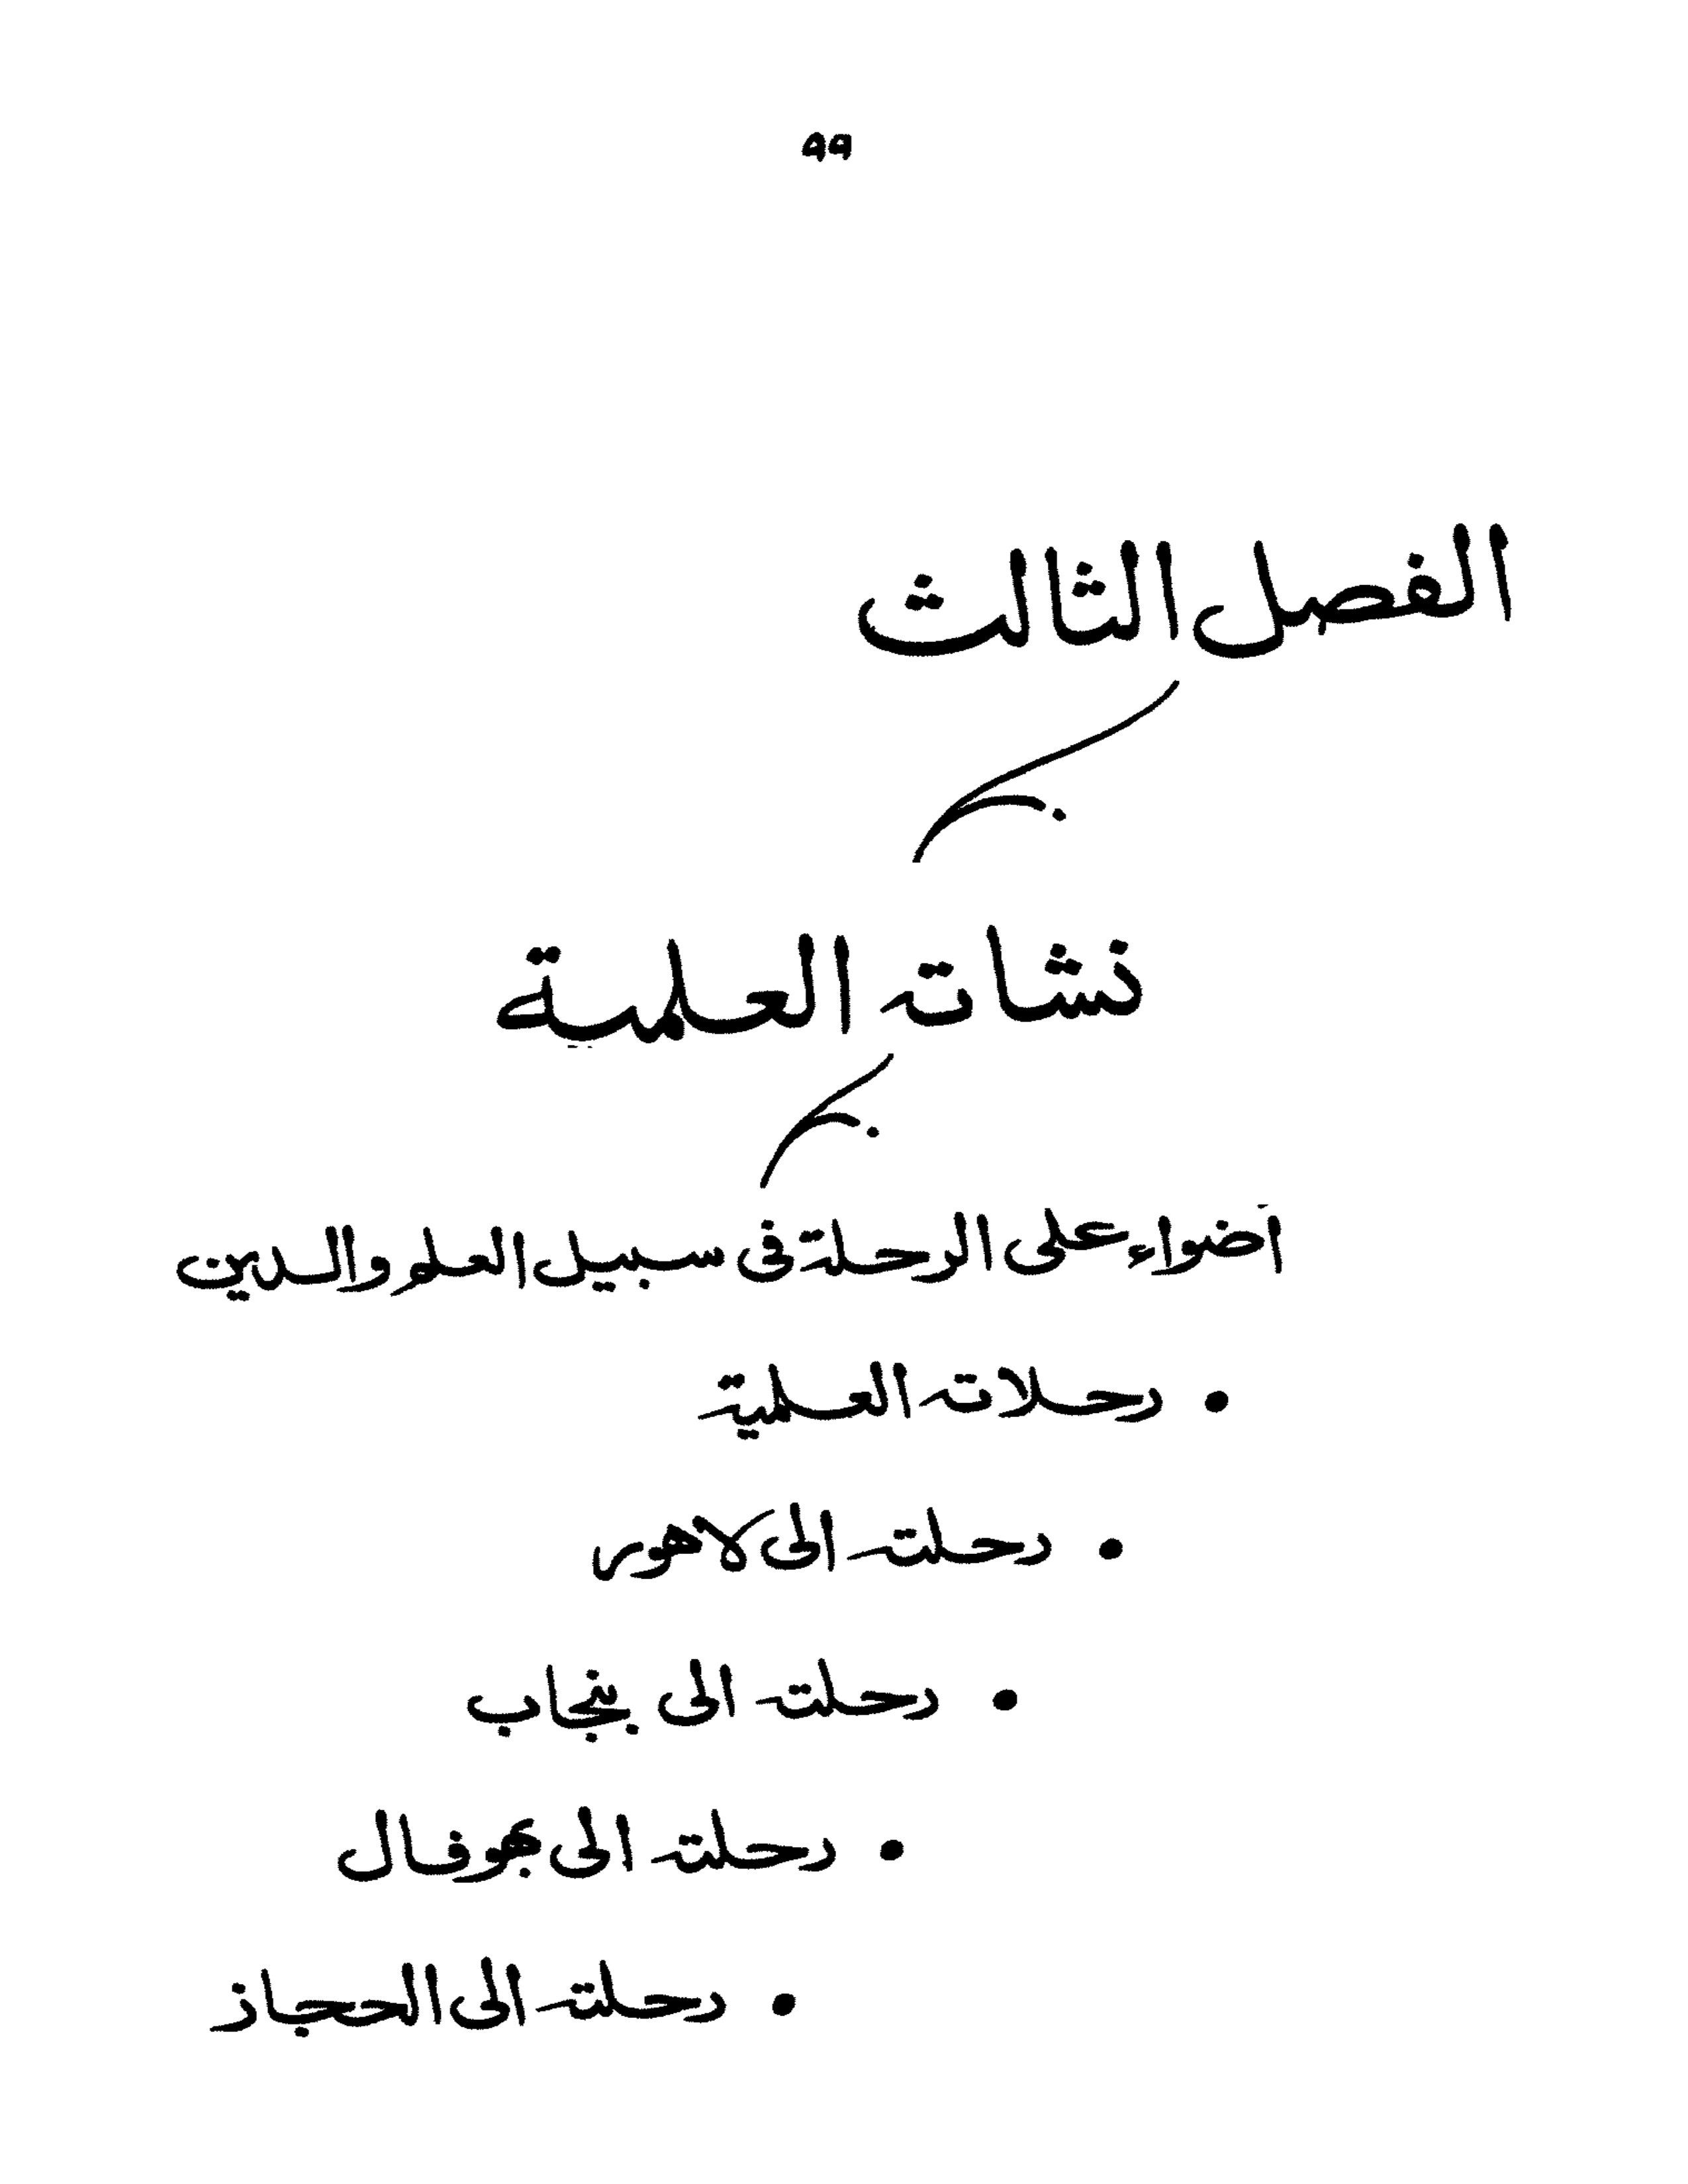 ٩٩
الفصل الثالث
نشاته العلمية
أضواء على الرحلة فى سبيل العلم والدين
• رحلاته العلمية
• رحلته الى لاهور
• رحلته الى بنجاب
• رحلته الى بهوفال
• رحلته الى الحجاز